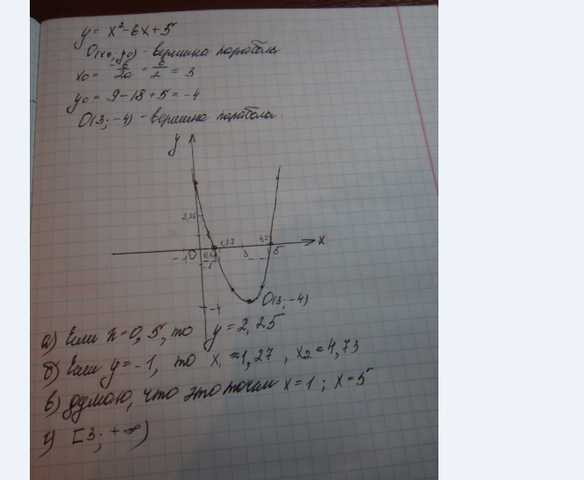 y = x² - 6x + 5
O(x₀, y₀) - вершина параболы
x₀ = -b/2a = 6/2 = 3
y₀ = 9 - 18 + 5 = -4
O(3; -4) - вершина параболы
y
2,25
-1 O 1,27 3 4,73 5 x
-1
-4
O(3, -4)
а) Если x=0,5, то y=2,25
б) Если y=-1, то x₁≈1,27, x₂=4,73
в) думаю, что это точки x=1; x=5
г) [3; +∞)